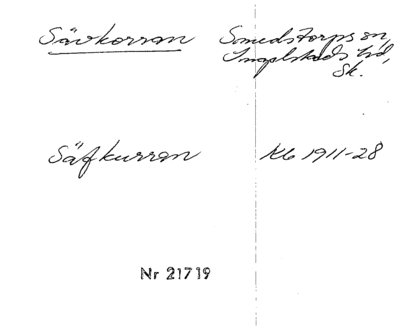 Sävkorran
Smedstorps sn,
Ingelstads hd,
Sk.
Säfkurran
Kb 1911-28
Nr 21719